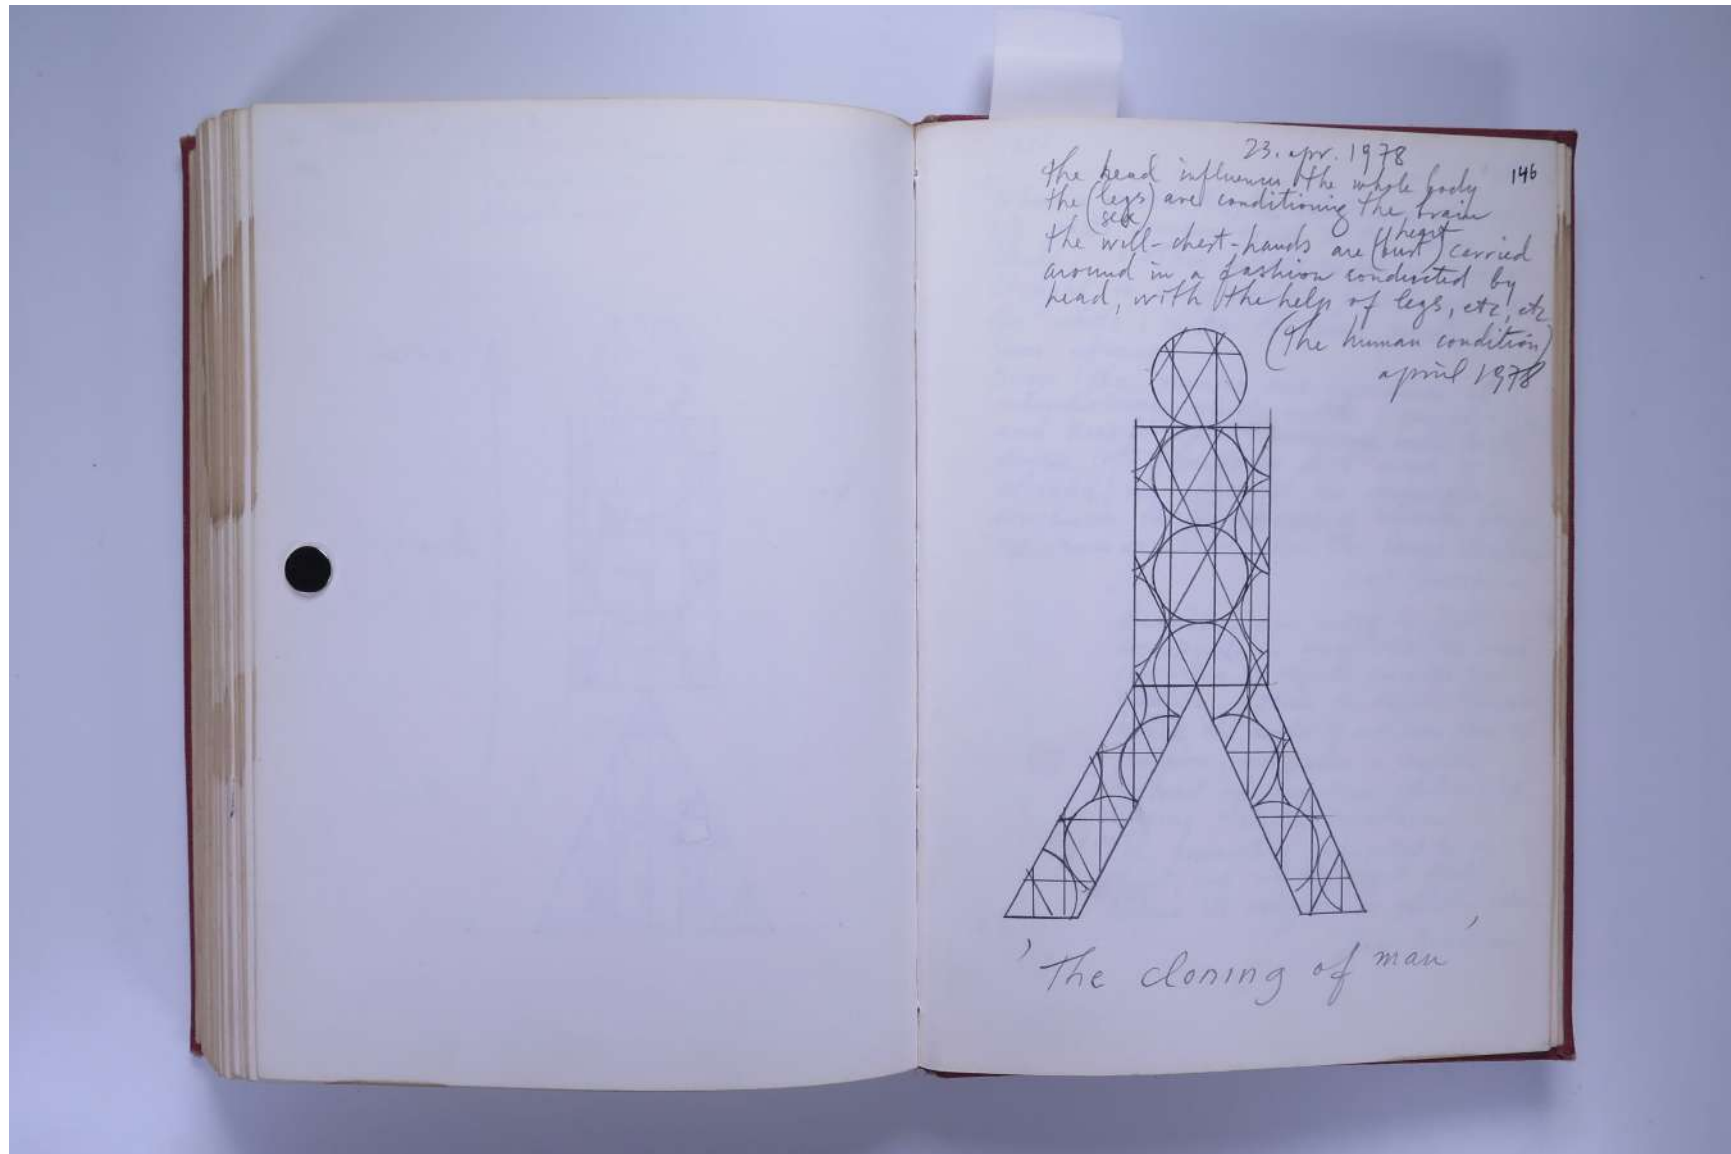 23. apr. 1978
146
the head influences the whole body
the (legs) are conditioning the brain
(sex)
heart
the will-chest-hands are (bust) carried
around in a fashion conducted by
head, with the help of legs, etc, etc
(the human condition)
april 1978
'The cloning of man'